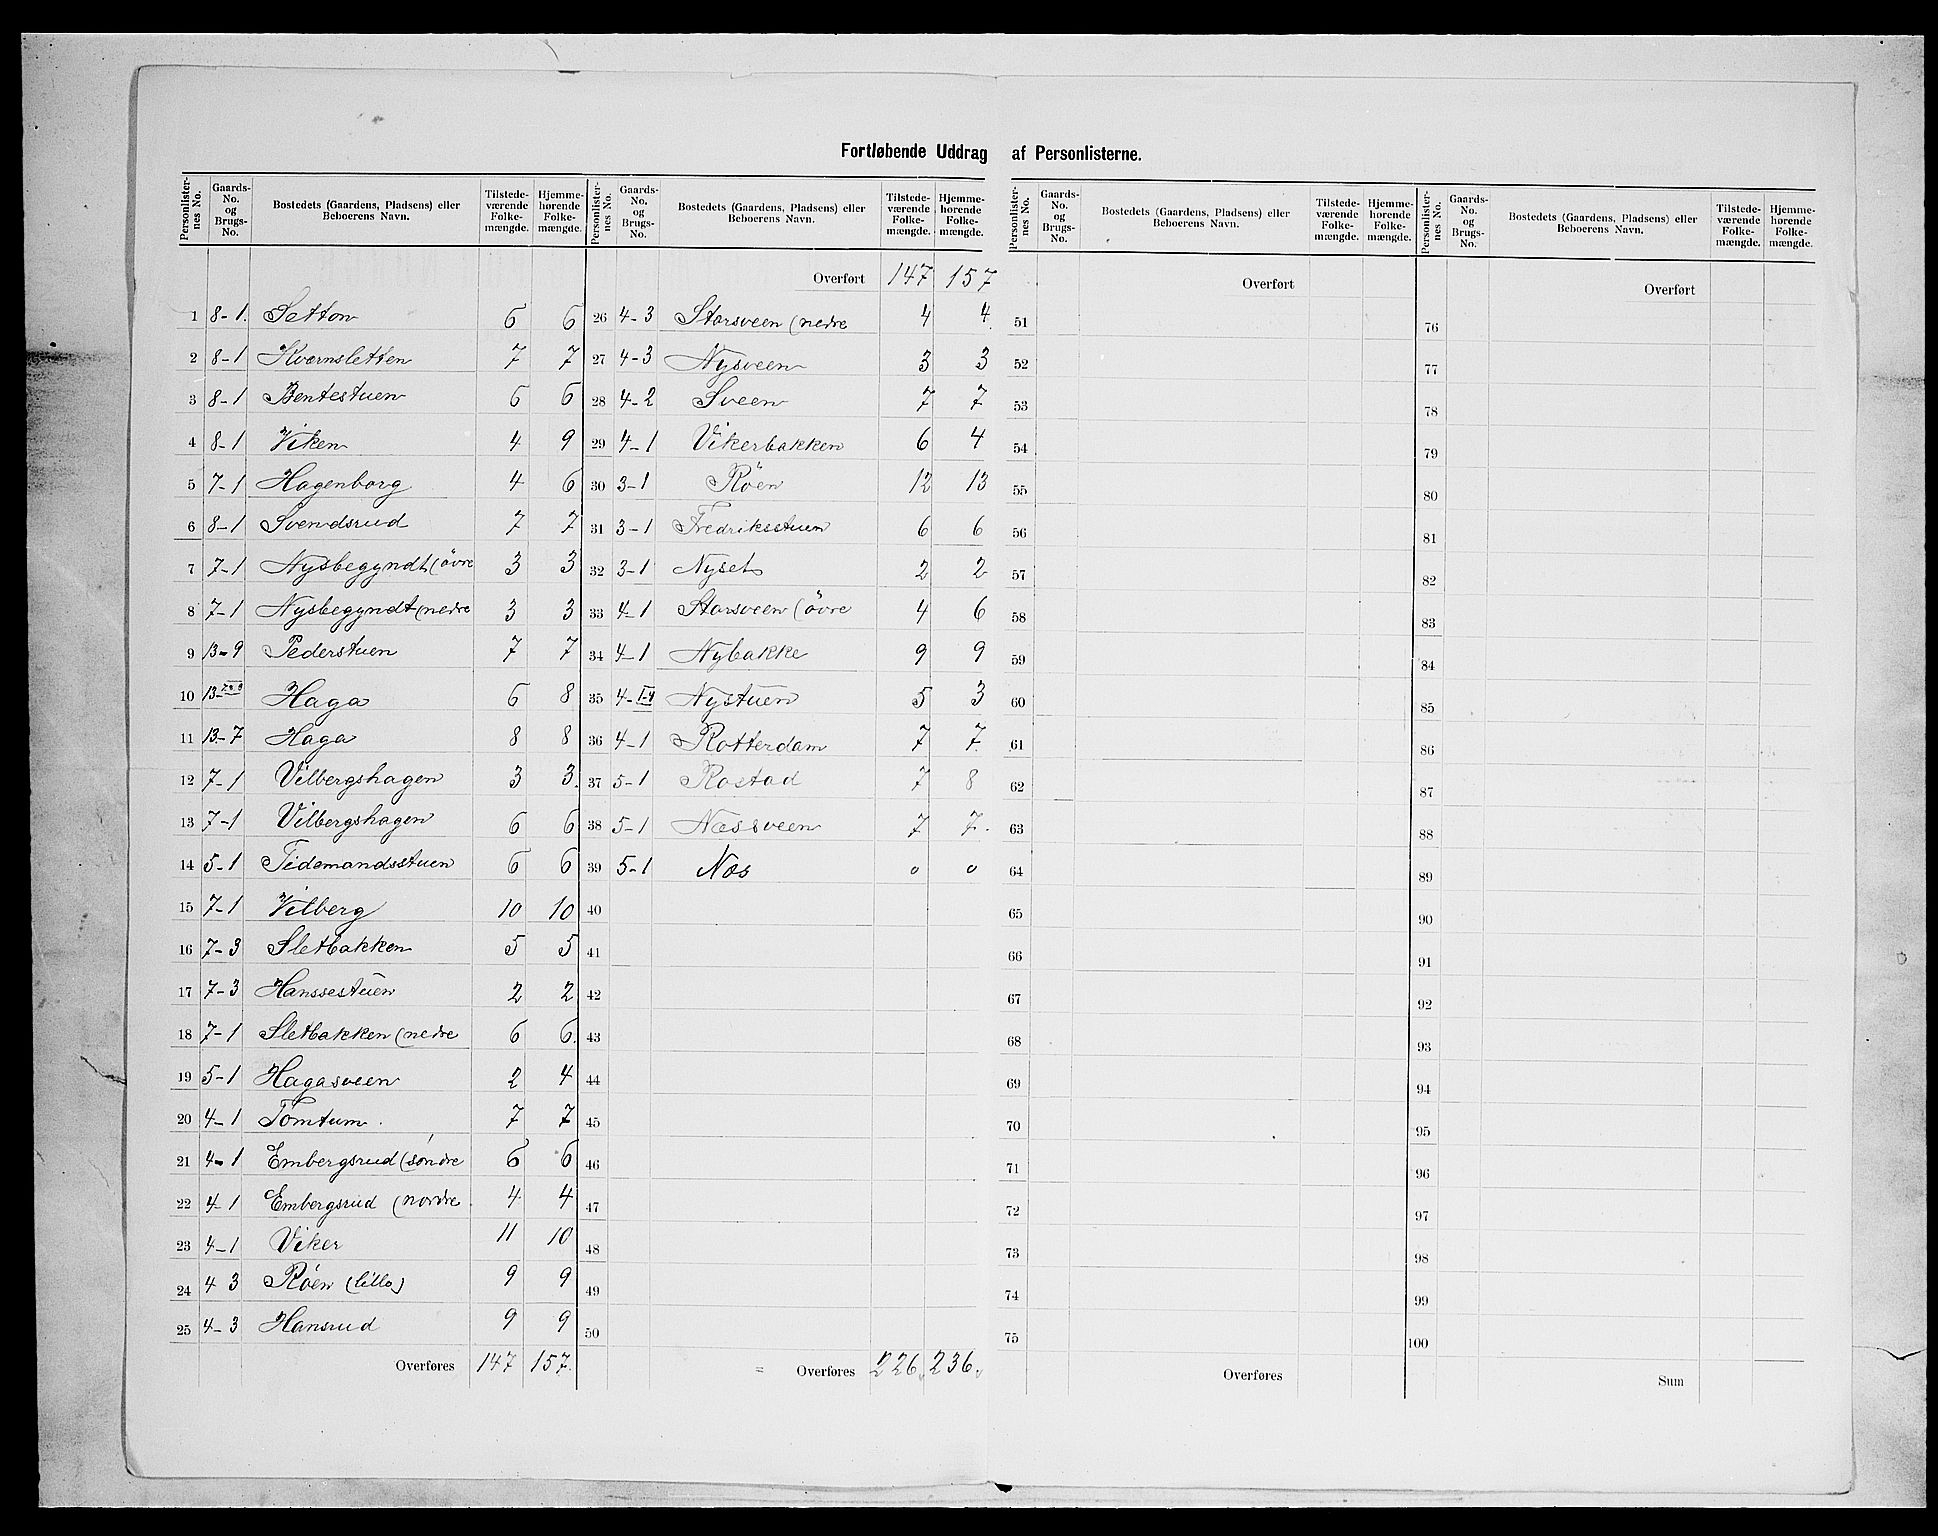 Fortløbende Uddrag af Personlisterne.
Personlister-nes No. | Gaards-No. og Brugs-No. | Bostedets (Gaardens, Pladsens) eller Beboerens Navn. | Tilstede-værende Folke-mængde. | Hjemme-hørende Folke-mængde.
1 8-1. Setton 6 6
2 8-1 Kvernsletten 7 7
3 8-1 Bentestuen 6 6
4 8-1 Viken 4 9
5 7-1 Hagenborg 4 6
6 8-1 Svendsrud 7 7
7 7-1 Nysbegyndt (övre 3 3
8 7-1 Nysbegyndt (nedre 3 3
9 13-9 Pederstuen 7 7
10 13- Haga 6 8
11 13-7 Haga 8 8
12 7-1 Vilbergshagen 3 3.
13 7-1 Vilbergshagen 6 6
14 5-1 Tidemandsstuen 6 6
15 7-1 Vilberg 10 10
16 7-3 Sletbakken 5 5
17 7-3 Hanssestuen 2 2
18 7-1 Sletbakken (nedre 6 6.
19 5-1 Hagasveen 2 4
20 4-1 Tomtum. 7 7
21 4-1 Embergsrud (söndre 6 6
22 4-1 Embergsrud (nordre. 4 4
23 4-1 Viker 11 10
24 4 3 Röen (lille) 9 9
25 4-3 Hansrud 9 9
Overføres 147 157.
Personlister-nes No. | Gaards-No. og Brugs-No. | Bostedets (Gaardens, Pladsens) eller Beboerens Navn. | Tilstede-værende Folke-mængde. | Hjemme-hørende Folke-mængde.
Overført 147 157
26 4-3 Storsveen (nedre 4 4.
27 4-3 Nysveen 3 3
28 4-2 Sveen 7 7
29 4-1 Vikerbakken 6 4
30 3-1 Röen 12 13
31 3-1 Fredriksstuen 6 6
32 3-1 Nyset 2 2
33 4-1 Storsveen (övre 4 6
34 4-1 Nybakke 9 9
35 4-1-4 Nystuen 5 3
36 4-1 Rotterdam 7 7
37 5-1 Rostad 7 8
38 5-1 Næssveen 7 7.
39 5-1 Næs 0 0
40
41
42
43
44
45
46
47
48
49
50
= Overføres 226. 236.
Personlister-nes No. | Gaards-No. og Brugs-No. | Bostedets (Gaardens, Pladsens) eller Beboerens Navn. | Tilstede-værende Folke-mængde. | Hjemme-hørende Folke-mængde.
Overført
51
52
53
54
55
56
57
58
59
60
61
62
63
64
65
66
67
68
69
70
71
72
73
74
75
Overføres
Personlister-nes No. | Gaards-No. og Brugs-No. | Bostedets (Gaardens, Pladsens) eller Beboerens Navn. | Tilstede-værende Folke-mængde. | Hjemme-hørende Folke-mængde.
Overført
76
77
78
79
80
81
82
83
84
85
86
87
88
89
90
91
92
93
94
95
96
97
98
99
100
Sum